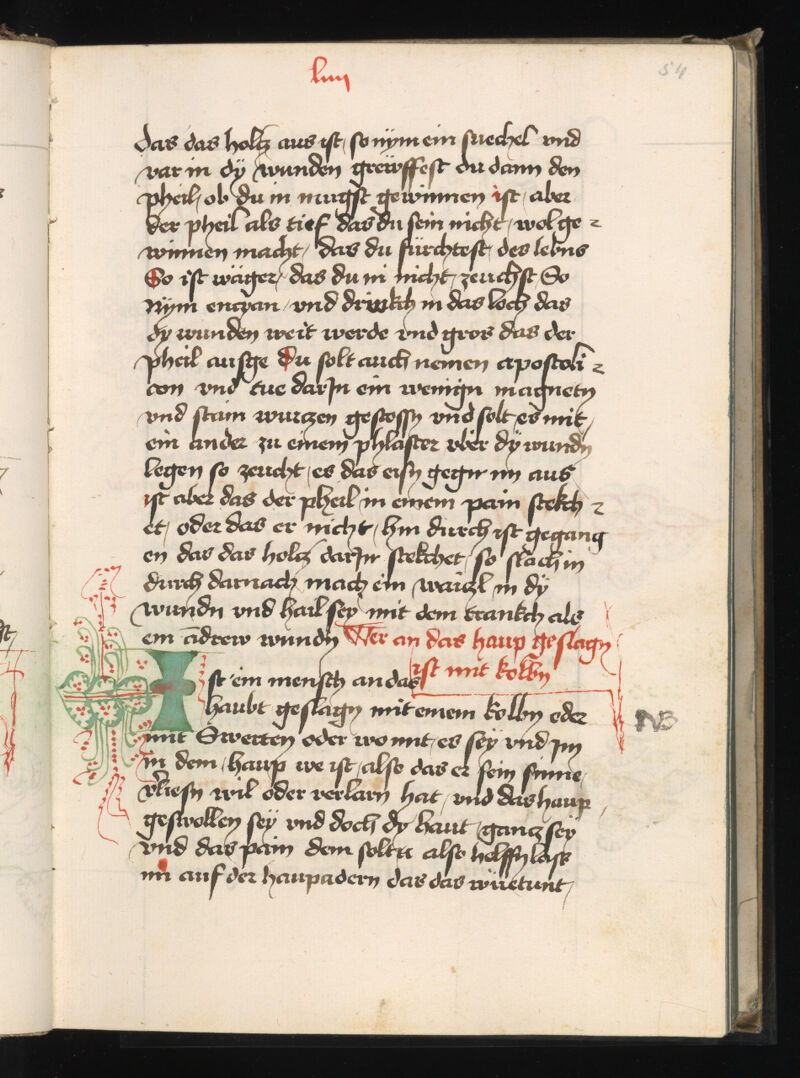 liiij
54
das das holtz aus ist / so nym ein suechel vnd
var in dy wunden greiffest du dann den
pheil / ob du in mugst gewinnen ist / aber
der pheil als tief das du sein nicht / wol ge
winnen macht / das du fürchtest / des lebns
So ist wäger / das du in nicht zeuchst So
Nym enczan / vnd drinkch in das loch das
dy wunden weit werde vnd gros das der
pheil ausge Du solt auch nemen apostoli
con vnd tue darJn ein wenign magnetn
vnd stain wurczen gestossn vnd solt es mit
ein ander zu einem phlaster vber dy wundn
legen so zeucht / es das eisn gegn im aus
ist aber das der pheil in einem pain stekch
et / oder das er nicht / hin durch ist gegang
en das das holtz darJn stekchet / so slach in
durch darnach mach ein waiczl in dy
wundn vnd hail sey mit dem trankch als
ein andrew wundn Wer an das haup geslagn
ist mit kolbn
Ist ein mensch an das
haubt geslagn mit einem kolbn oder
NB
mit Swerten oder wo mit / es sey vnd Jm
in dem / haup we ist / also das er sein sinne
vliesn wil oder verlarn hat / vnd das haup
geswollen sey vnd doch dy haut / gancz sey
vnd das pain dem soltu also helffn lass
im auf der haupadern das das wüetunt /